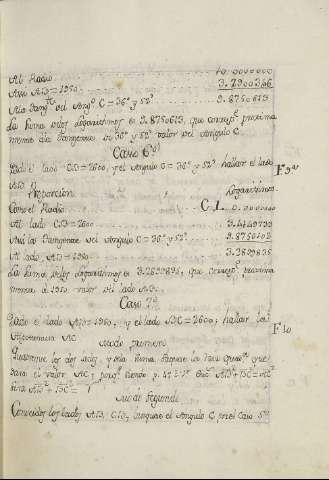 Al Radio 10.0000000
Assi AB=1950. 3.2900346
A la Tang.te del Ang.o C=36° y 52' 9.8750613
La suma de los Logarithmos es 9.8750613, que corresp.e proxima
mente a la Tangente de 36° y 52' valor del Angulo C.
Caso 6°
Dado el lado CB=2600, y el Angulo C=36° y 52' hallar el lado
AB. F 9a
Proporcion Logarithmos
Como el Radio C.L. 0.0000000
Al lado CB=2600 3.4149733
Assi la Tangente del Angulo C=36° y 52' 9.8750102
Al lado AB=1950 3.2899835
La suma de los Logarithmos es 3.2899835, que corresp.e proxima
mente a 1950 valor del lado AB.
Caso 7°
Dado el lado AB=1950, y el lado BC=2600; hallar la
Hypotenusa AC F 10
Modo primero
Quadrense los dos lados, y de la suma saquese la raiz quad.a que
dara el valor AC, porq.e siendo p. 47. L. 1° Euc. AB²+BC²=AC²
sera AB²+BC²=
Modo Segundo
Conocidos los lados AB, CB, busquese el Angulo C por el Caso 5°